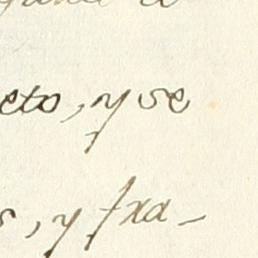 cto, y se
s, y fxa-